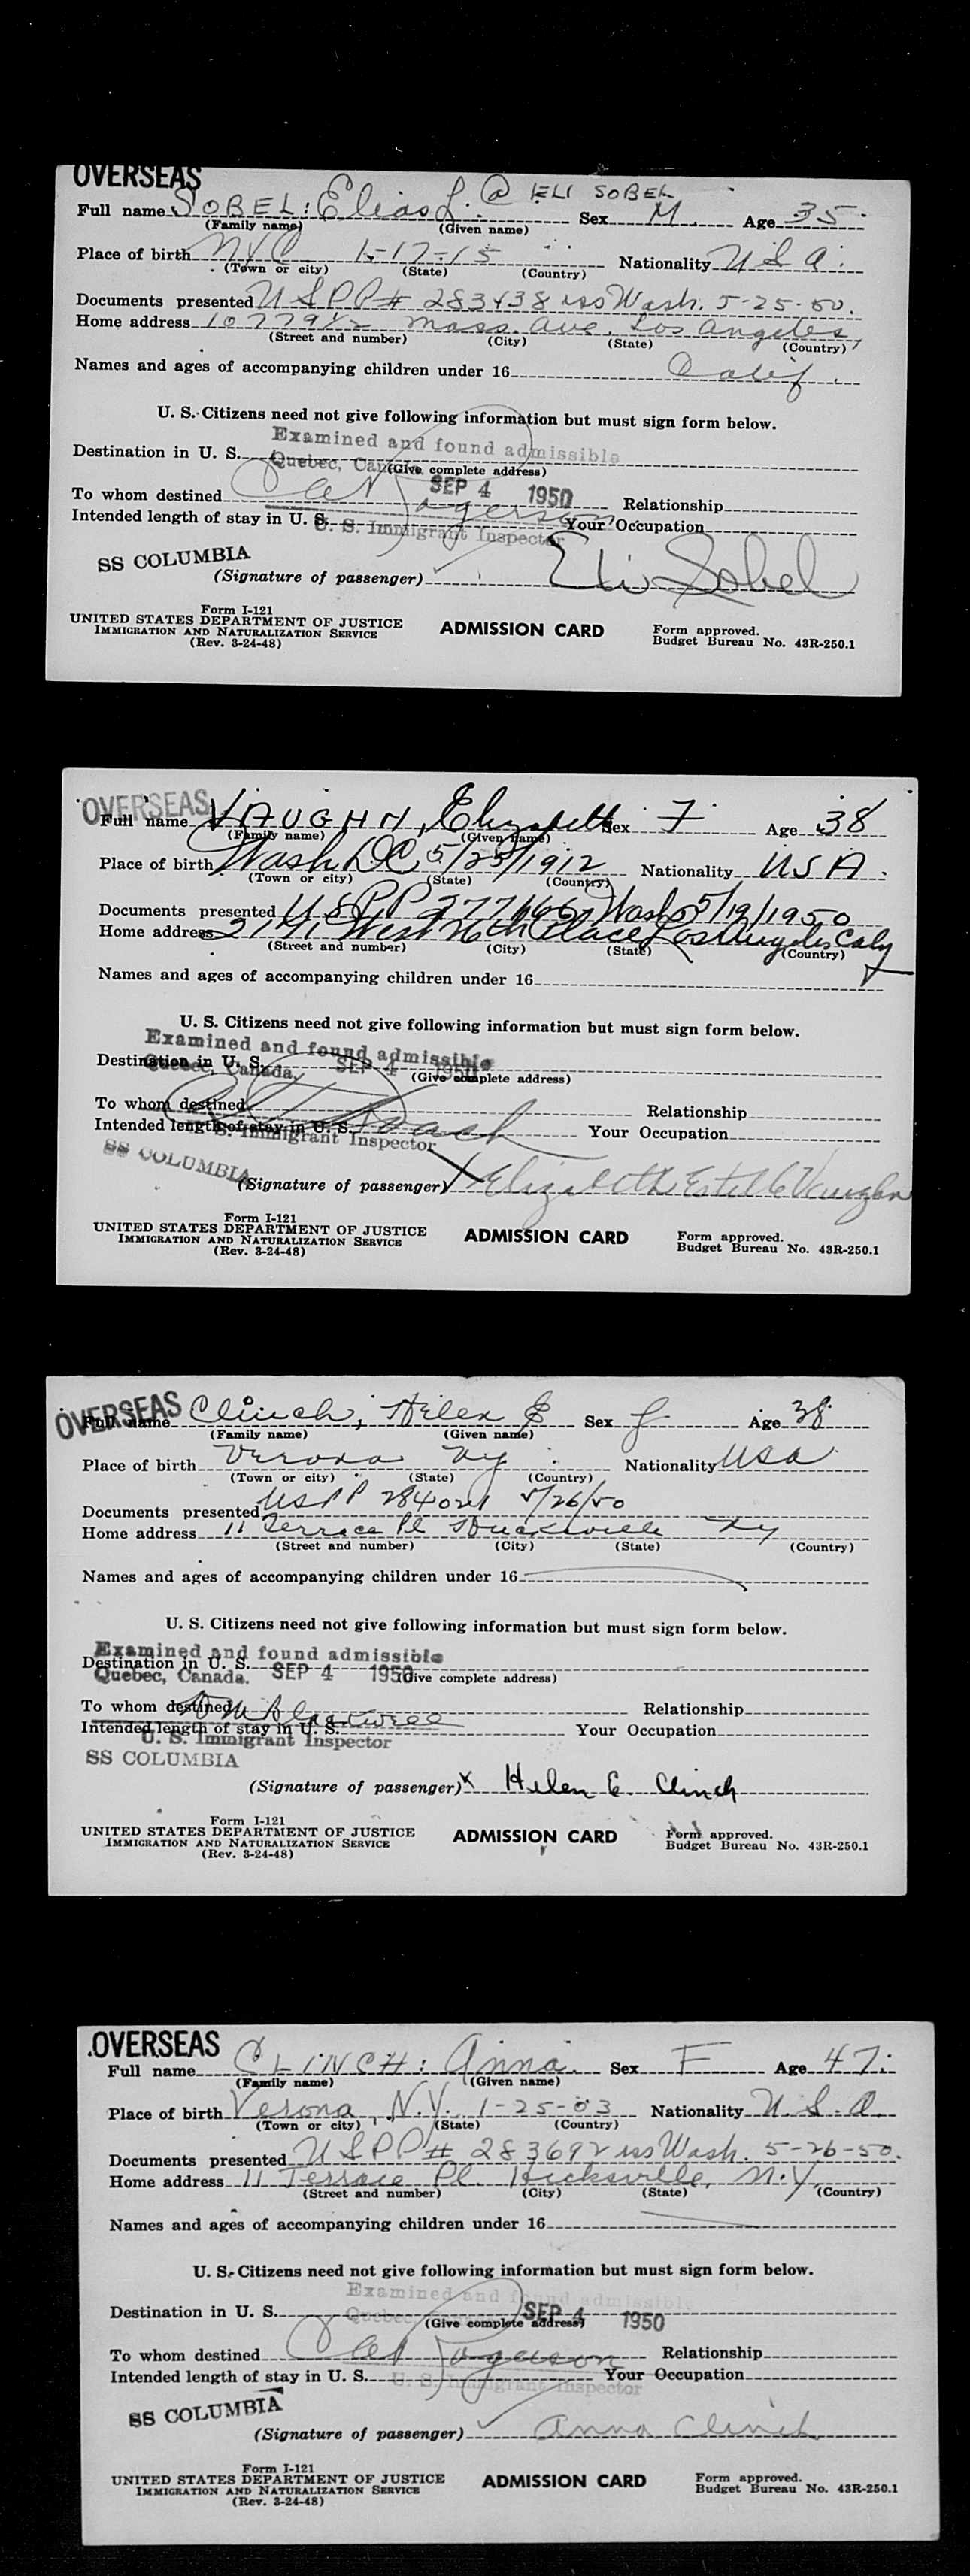 OVERSEAS
Full name SOBEL: Elias L. @ ELI SOBEL Sex M. Age 35.
(Family name) (Given name)
Place of birth NYC 1-17-15 Nationality U S A.
(Town or city) (State) (Country)
Documents presented U S P P # 283438 iss Wash. 5-25-50.
Home address 10779½ Mass. Ave. Los Angeles,
(Street and number) (City) (State) (Country)
Names and ages of accompanying children under 16 Calif.
U. S. Citizens need not give following information but must sign form below.
Examined and found admissible
Destination in U. S.
Quebec, Canada (Give complete address)
SEP 4 1950
To whom destined Relationship
Intended length of stay in U. S. Your Occupation
U. S. Immigrant Inspector
SS COLUMBIA
(Signature of passenger) Eli Sobel
Form I-121
UNITED STATES DEPARTMENT OF JUSTICE ADMISSION CARD Form approved.
IMMIGRATION AND NATURALIZATION SERVICE Budget Bureau No. 43R-250.1
(Rev. 3-24-48)
OVERSEAS
Full name VAUGHN, Elizabeth Sex F Age 38
(Family name) (Given name)
Place of birth Wash DC 5/25/1912 Nationality USA.
(Town or city) (State) (Country)
Documents presented U S P P Wash 5/19/1950
Home address West Place Los Angeles Calif
(Street and number) (City) (State) (Country)
Names and ages of accompanying children under 16
U. S. Citizens need not give following information but must sign form below.
Examined and found admissible
Destination in U. S.
Quebec, Canada, SEP 4 1950 (Give complete address)
To whom destined Relationship
Intended length of stay in U. S. Your Occupation
U. S. Immigrant Inspector
SS COLUMBIA
(Signature of passenger) Elizabeth Estelle Vaughn
Form I-121
UNITED STATES DEPARTMENT OF JUSTICE ADMISSION CARD Form approved.
IMMIGRATION AND NATURALIZATION SERVICE Budget Bureau No. 43R-250.1
(Rev. 3-24-48)
OVERSEAS
Full name Clinch, Helen E Sex f Age 38
(Family name) (Given name)
Place of birth Verona Ny Nationality USA
(Town or city) (State) (Country)
Documents presented USPP 284021 5/26/50
Home address 11 Terrace Pl Hicksville Ny
(Street and number) (City) (State) (Country)
Names and ages of accompanying children under 16
U. S. Citizens need not give following information but must sign form below.
Examined and found admissible
Destination in U. S.
Quebec, Canada. SEP 4 1950 (Give complete address)
To whom destined Relationship
Intended length of stay in U. S. Your Occupation
U. S. Immigrant Inspector
SS COLUMBIA
(Signature of passenger) x Helen E. Clinch
Form I-121
UNITED STATES DEPARTMENT OF JUSTICE ADMISSION CARD Form approved.
IMMIGRATION AND NATURALIZATION SERVICE Budget Bureau No. 43R-250.1
(Rev. 3-24-48)
OVERSEAS
Full name CLINCH: Anna. Sex F Age 47.
(Family name) (Given name)
Place of birth Verona, N.Y. 1-25-03 Nationality U. S. A.
(Town or city) (State) (Country)
Documents presented U S P P # 283692 iss Wash. 5-26-50.
Home address 11 Terrace Pl. Hicksville, N.Y.
(Street and number) (City) (State) (Country)
Names and ages of accompanying children under 16
U. S. Citizens need not give following information but must sign form below.
Examined and found admissible
Destination in U. S. SEP 4 1950
Quebec (Give complete address)
To whom destined Relationship
Intended length of stay in U. S. Your Occupation
U. S. Immigrant Inspector
SS COLUMBIA
(Signature of passenger) Anna Clinch
Form I-121
UNITED STATES DEPARTMENT OF JUSTICE ADMISSION CARD Form approved.
IMMIGRATION AND NATURALIZATION SERVICE Budget Bureau No. 43R-250.1
(Rev. 3-24-48)